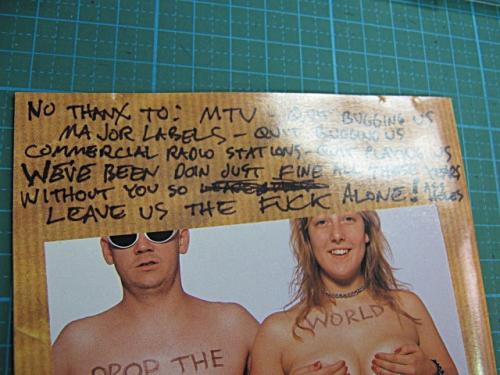 NO THANX TO: MTV - QUIT BUGGING US
MAJOR LABELS - QUIT BUGGING US
COMMERCIAL RADIO STATIONS - QUIT PLAYING US
WE'VE BEEN DOIN JUST FINE ALL THESE YEARS
WITHOUT YOU SO
LEAVE US THE FUCK ALONE!
WORLD
DROP THE